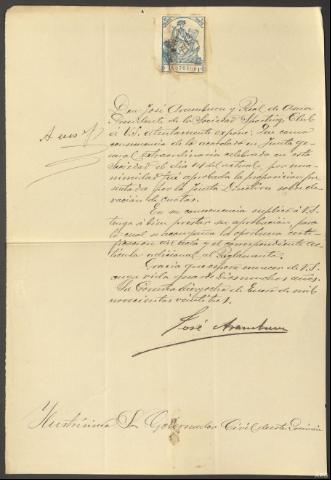 Don José Aramburu y Real de Asua
Presidente de la Sociedad Sporting Club
á V.S. atentamente expone: Que como
consecuencia de lo acordado en Junta ge-
neral extraordinaria celebrada en esta
Sociedad el día del actual, por una-
nimidad fué aprobada la proposición pre-
sentada por la Junta Directiva sobre ele-
vación de cuotas.
En su consecuencia suplico á V.S.
tenga á bien prestar su aprobación para
lo cual se acompaña la oportuna certi-
ficación del acta y el correspondiente ar-
tículo adicional al Reglamento.
Gracia que espero merecer de V.S.
cuya vida guarde Dios muchos años.
La Coruña dieciocho de Enero de mil
novecientos veintitrés.
José Aramburu
Ilustrísimo Sr. Gobernador Civil de esta Provincia